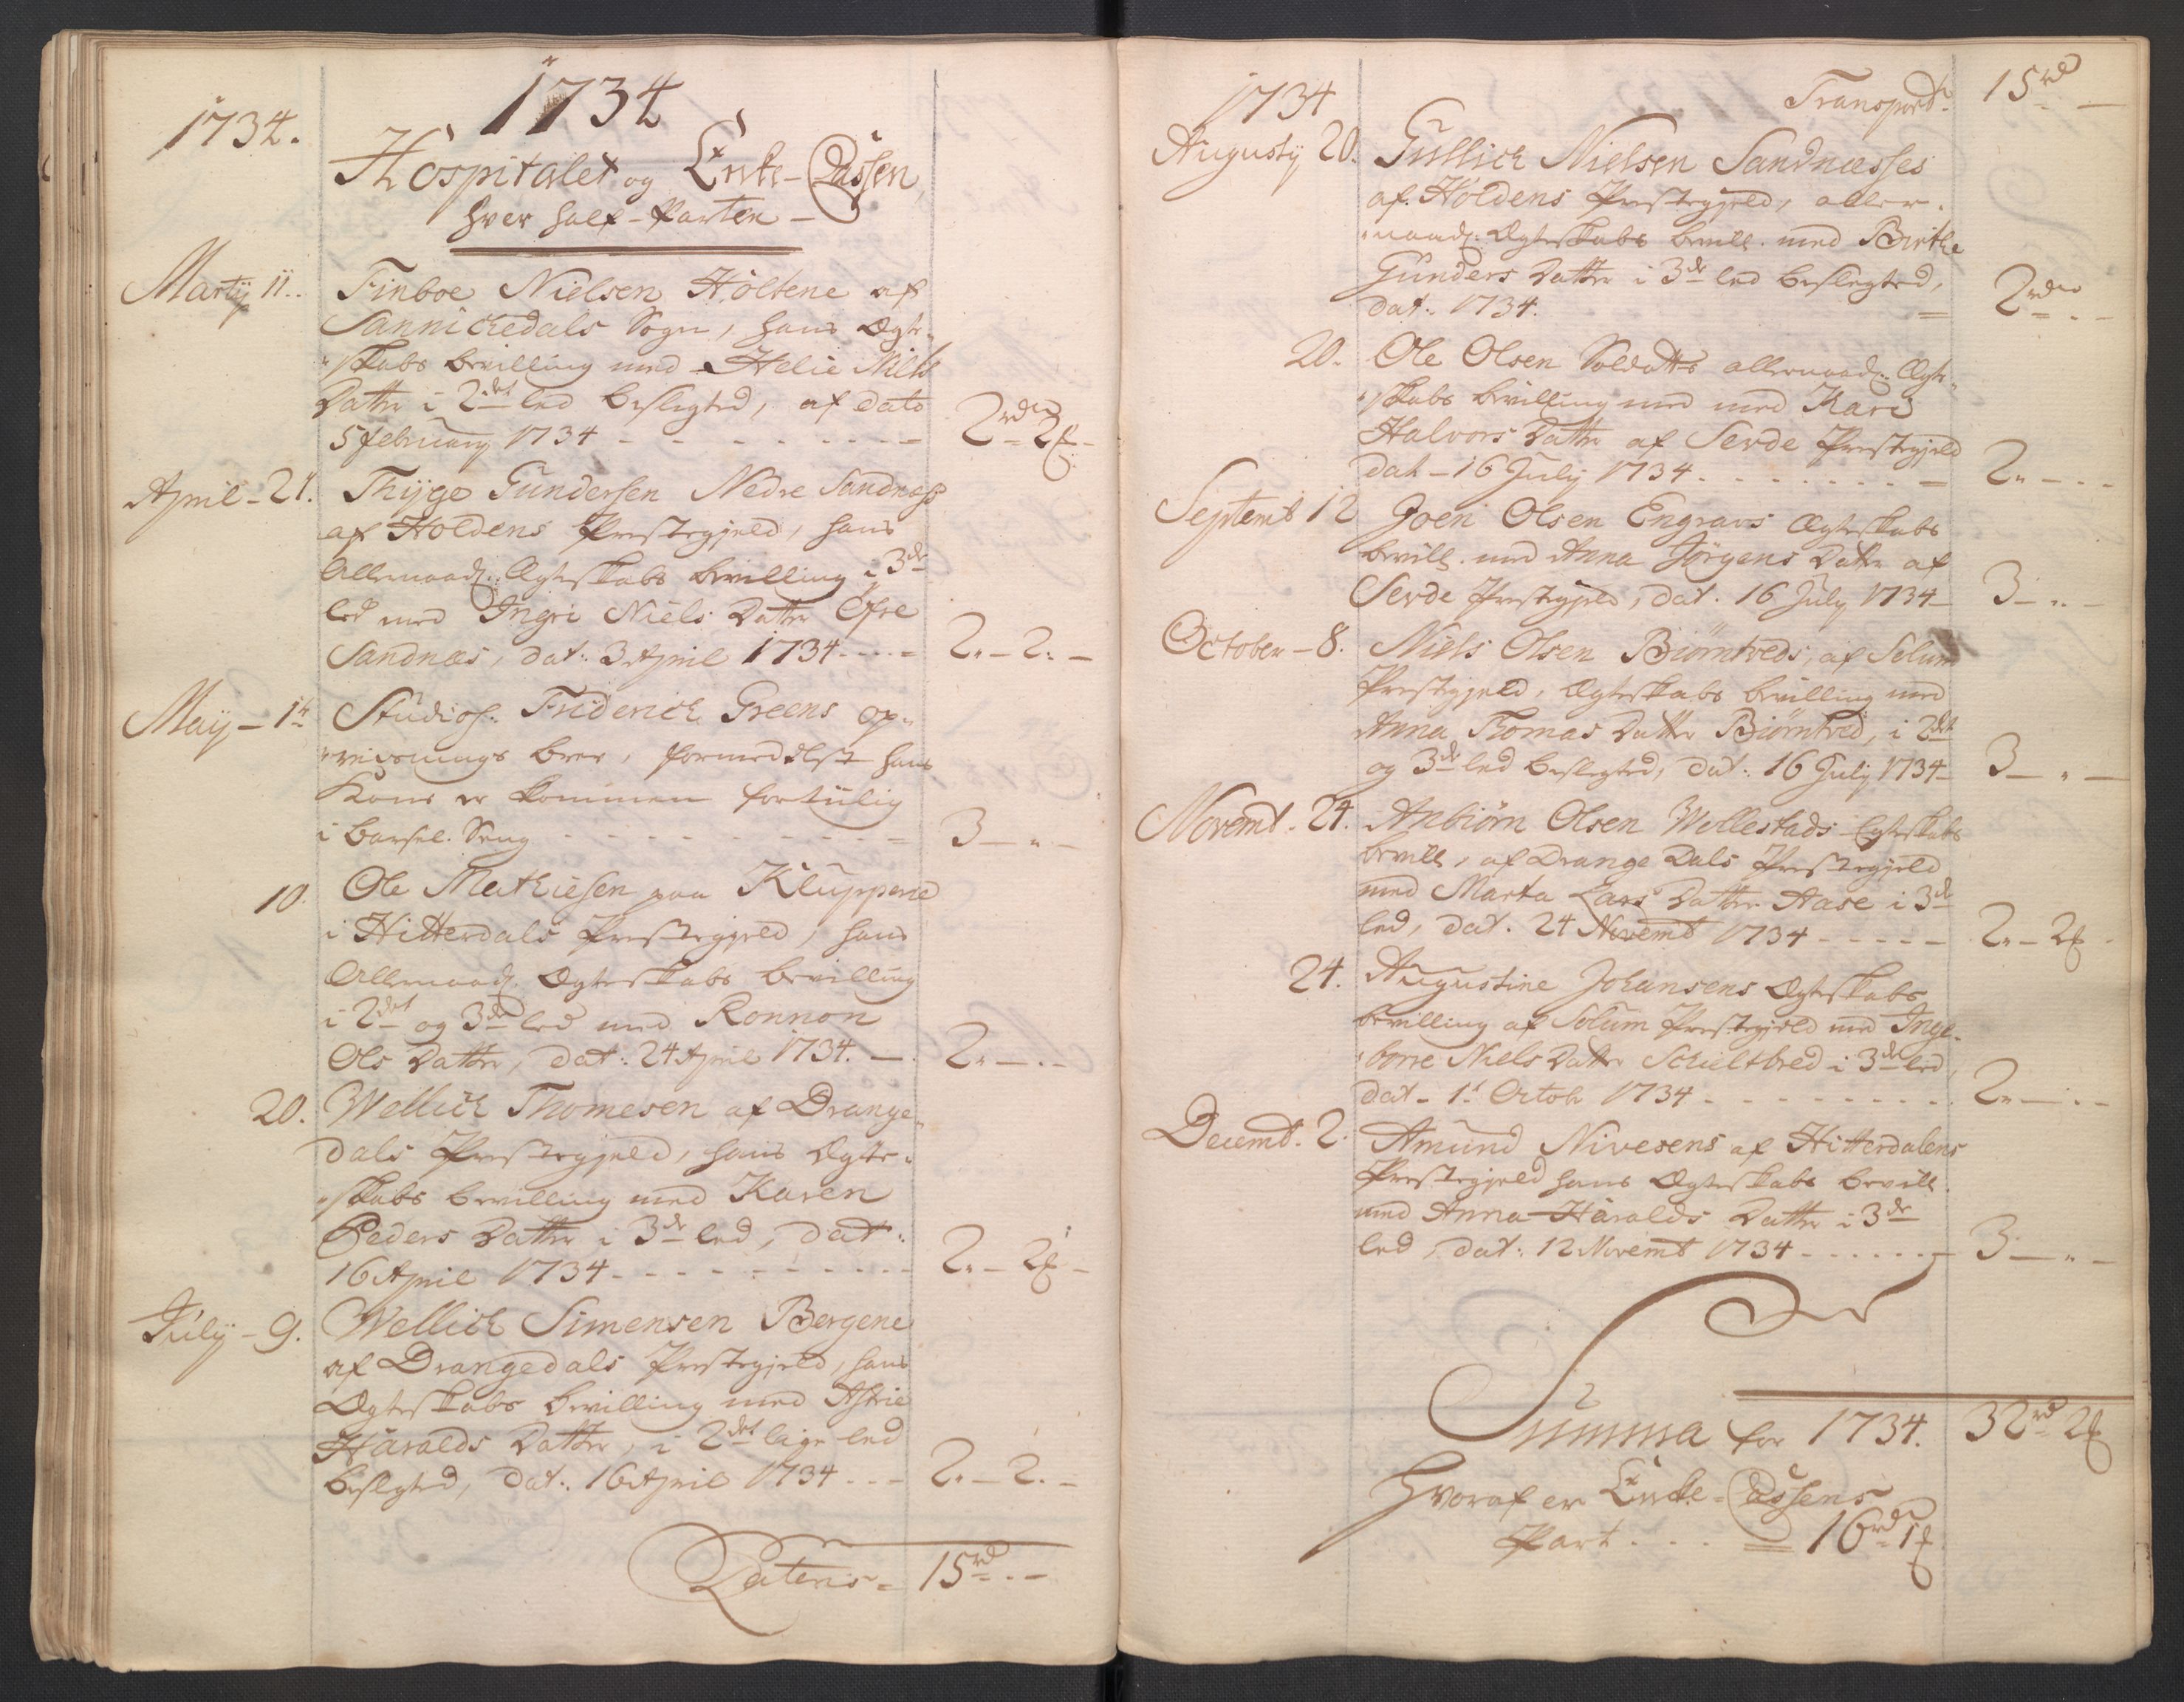 1734
1734.
Hospitalet og Encke-Cassen,
hver half-Parten
Martij 11.. Finboe Nielsen Holtene af
Sannickedals Sogn, hans Ægte-
skabs bevilling med Helie Niels
Datter i 2det led beslegted, af dato
5 februarij 1734 - - - 2rdr 2ß -
April - 21. Thijge Gundersen Nedre Sandnæss
af Holdens Prestegjeld, hans
Allernaad: Ægteskabs bevilling i 3de
led med Ingri Niels Datter Øfre
Sandnæs, dat: 3 April 1734 - - 2. - 2. -
Maij - 1te Studios: Friderich Greens op-
reisnings brev, formedelst hans
Kone er kommen fortiilig
i barsel Seng - - - 3 - " -
10. Ole Mathiesen paa Kluppene
i Hitterdals Prestegjeld, hans
Allernaad: Ægteskabs bevilling
i 2det og 3de led med Ronnon
Ols Datter, dat: 24 April 1734. - 2. - . -
20. Wellich Thomesen af Drange-
dals Prestegjeld, hans Ægte-
skabs bevilling med Karen
Peders Datter i 3de led, dat:
16 April 1734 - - - 2. - 2ß -
Julij - 9. Wellich Simensen Bergene
af Drangedals Prestegjeld, hans
Ægteskabs bevilling med Astrie
Haralds Datter, i 2det lige led
beslegted, dat: 16 April 1734 - - - 2. - 2. -
Lateris = 15rd - . -
1734 Transport 15rd -
Augustij 20. Gullich Nielsen Sandnæsses
af Holdens Prestegjeld, aller-
naad: Ægteskabs bevill. med Birthe
Gunders Datter i 3de led beslegted,
dat: 1734. 2rdr - . -
20. Ole Olsen Soldatts allernaad: Ægte-
skabs bevilling med med Kari
Halvors Datter af Serde Prestegjeld
dat - 16 Julij 1734 - - - 2. - . -
Septemb 12 Joen Olsen Engravs Ægteskabs
bevill. med Anna Jörgens Datter af
Serde Prestegjeld, dat. 16 Julij 1734 - 3 - . . -
October - 8. Niels Olsen Biørntveds, af Solum
Prestegjeld, Ægteskabs bevilling med
Anna Thomas Datter Biørntved, i 2det
og 3de led beslegted, dat: 16 Julij 1734 - 3 - " -
Novemb. 24. Anbiørn Olsen Wellestads Egteskabs
bevill, af Drange Dals Prestegjeld
med Marta Lars Datter Aase i 3de
led, dat. 24 Novemb 1734 - - - 2. - 2ß -
24. Augustine Johansens Ægteskabs
bevilling af Solum Prestegjeld med Inge-
borre Niels Datter Schultbred i 3de led,
dat - 1t Octob 1734 - - - 2. - . . -
Decemb. 2. Amund Nivesens af Hitterdalens
Prestegjeld hans Ægteskabs bevill.
med Anna Haralds Datter i 3de
led, dat: 12 Novemb 1734 - - - 3 - . . -
Summa for 1734. 32rd 2ß
Hvoraf er Encke-Cassens
Part . . . = 16rdr 1ß